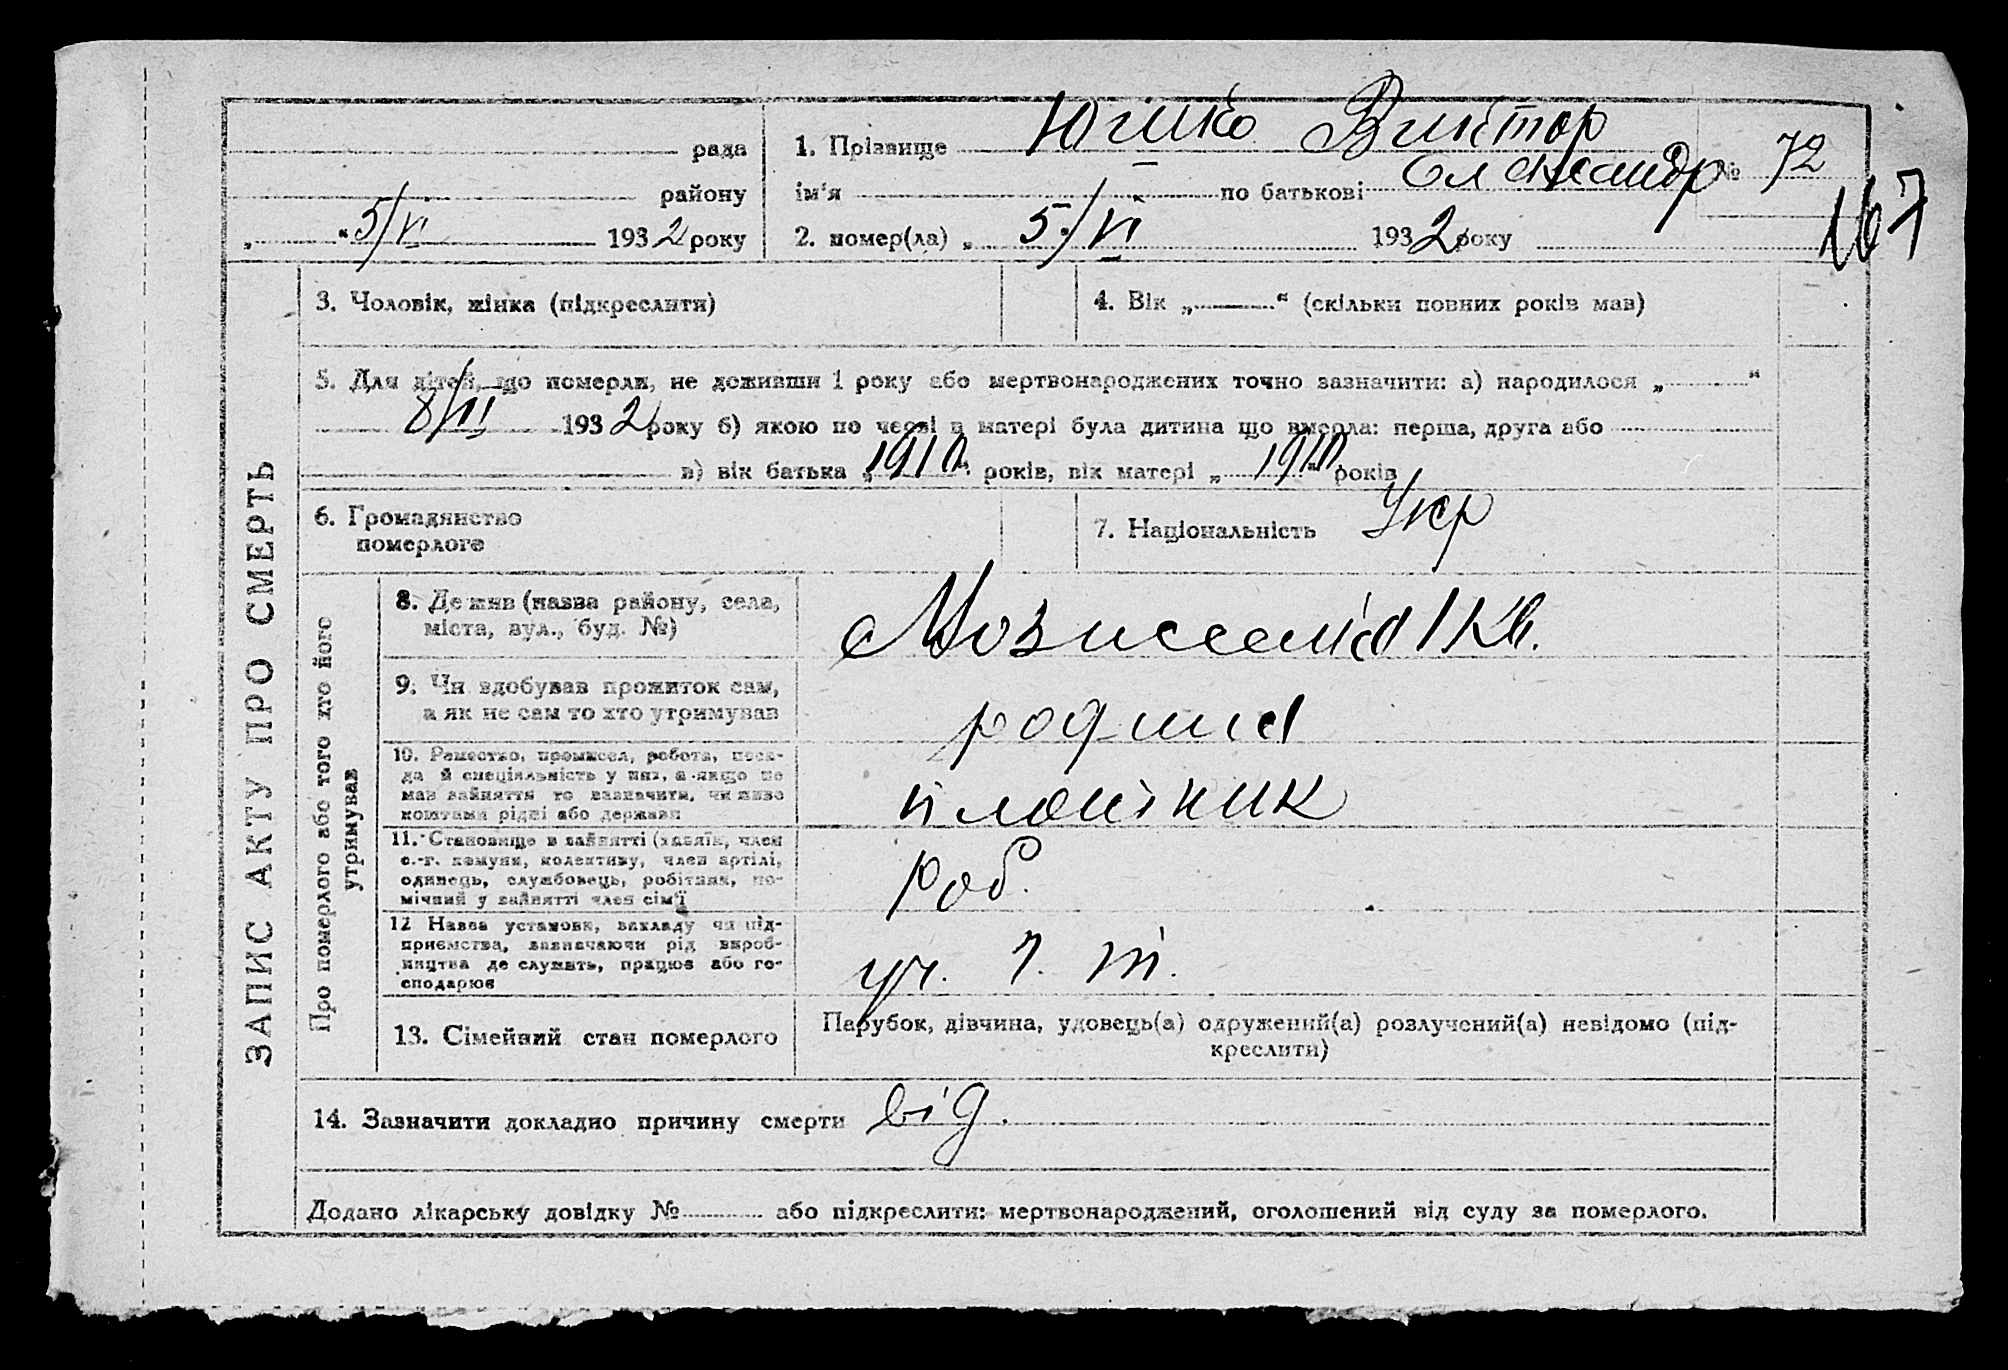 рада
району
„ “ 5/VI 1932 року
1. Прізвище Юшко Виктор
ім'я по батькові Олександр № 72
167
2. помер(ла) „ 5/VI 1932 року
ЗАПИС АКТУ ПРО СМЕРТЬ
3. Чоловік, жінка (підкреслити)
4. Вік „ “ (скільки повних років мав)
5. Для дітей, що померли, не доживши 1 року або мертвонароджених точно зазначити: а) народилося „ “
8/III 1932 року б) якою по черзі в матері була дитина що вмерла: перша, друга або
в) вік батька „1910“ років, вік матері „1910“ років
6. Громадянство
померлого
7. Національність Укр
Про померлого або того хто його
утримував
8. Де жив (назва району, села,
міста, вул., буд. №)
1 Кв.
9. Чи здобував прожиток сам,
а як не сам то хто утримував
родина
10. Ремество, промисел, робота, поса-
да й спеціяльність у них, а якщо не
мав зайняття то зазначити, чи живе
коштами рідні або держави
плотник
11. Становище в зайнятті (хазяїн, член
с.-г. комуни, колективу, член артілі,
одинець, службовець, робітник, по-
мічний у зайнятті член сім'ї
Роб.
12 Назва установи, закладу чи під-
приємства, зазначаючи рід вироб-
ництва де служить, працює або го-
сподарює
уч.
13. Сімейний стан померлого
Парубок, дівчина, удовець(а) одружений(а) розлучений(а) невідомо (під-
креслити)
14. Зазначити докладно причину смерти від.
Додано лікарську довідку № або підкреслити: мертвонароджений, оголошений від суду за померлого.